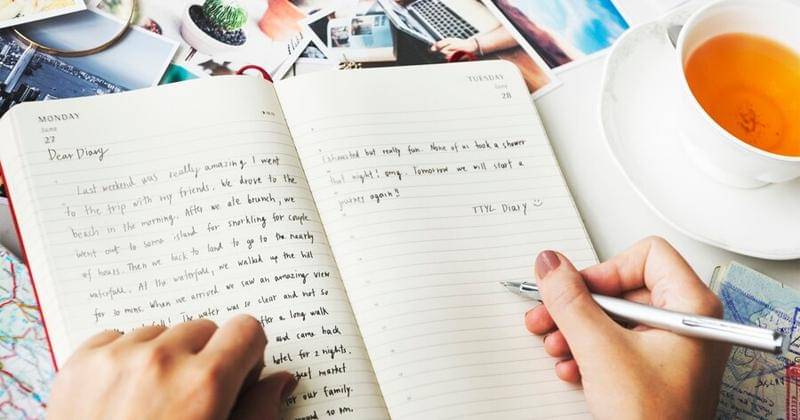 MONDAY
June
27
Dear Diary
Last weekend was really amazing I went
to the trip with my friends. We drove to the
beach in the morning. After we ate brunch, we
went out to some island for snorkling for couple
of hours. Then we back to land to go to the nearby
waterfall. At the waterfall, we walked up the hill
for 30 mins. When we arrived we saw an amazing view
waterfall! The water was so clear and not so
after a long walk
and came back
hotel for 2 nights.
market
for our family.
around 10 pm.
TUESDAY
June
28
Exhausted but really fun. None of us took a shower
that night! omg. Tomorrow we will start a
journey again!!
TTYL Diary